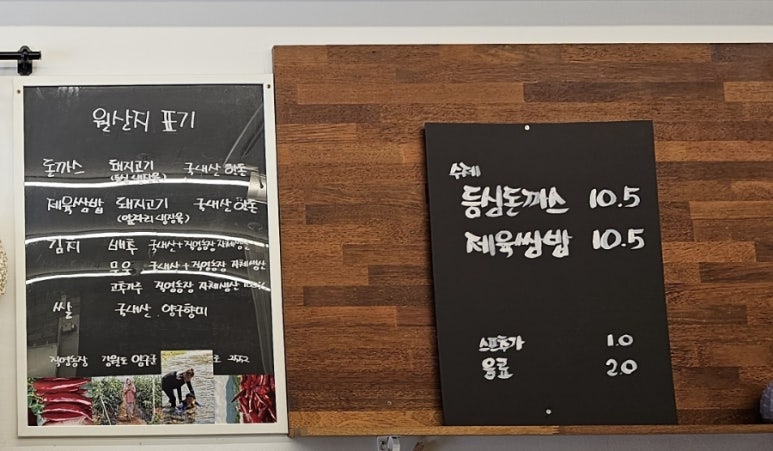 원산지 표기
돈까스 돼지고기 국내산 한돈
(등심 생장육)
제육쌈밥 돼지고기 국내산 한돈
(앞다리 냉장육)
김치 배추 국내산+직영농장 자체생산
무우 국내산+직영농장 자체생산
고추가루 직영농장 자체생산 100%
쌀 국내산. 양구향미
직영농장 강원도 양구군
수제
등심돈까스 10.5
제육쌈밥 10.5
스프추가 1.0
음료 2.0